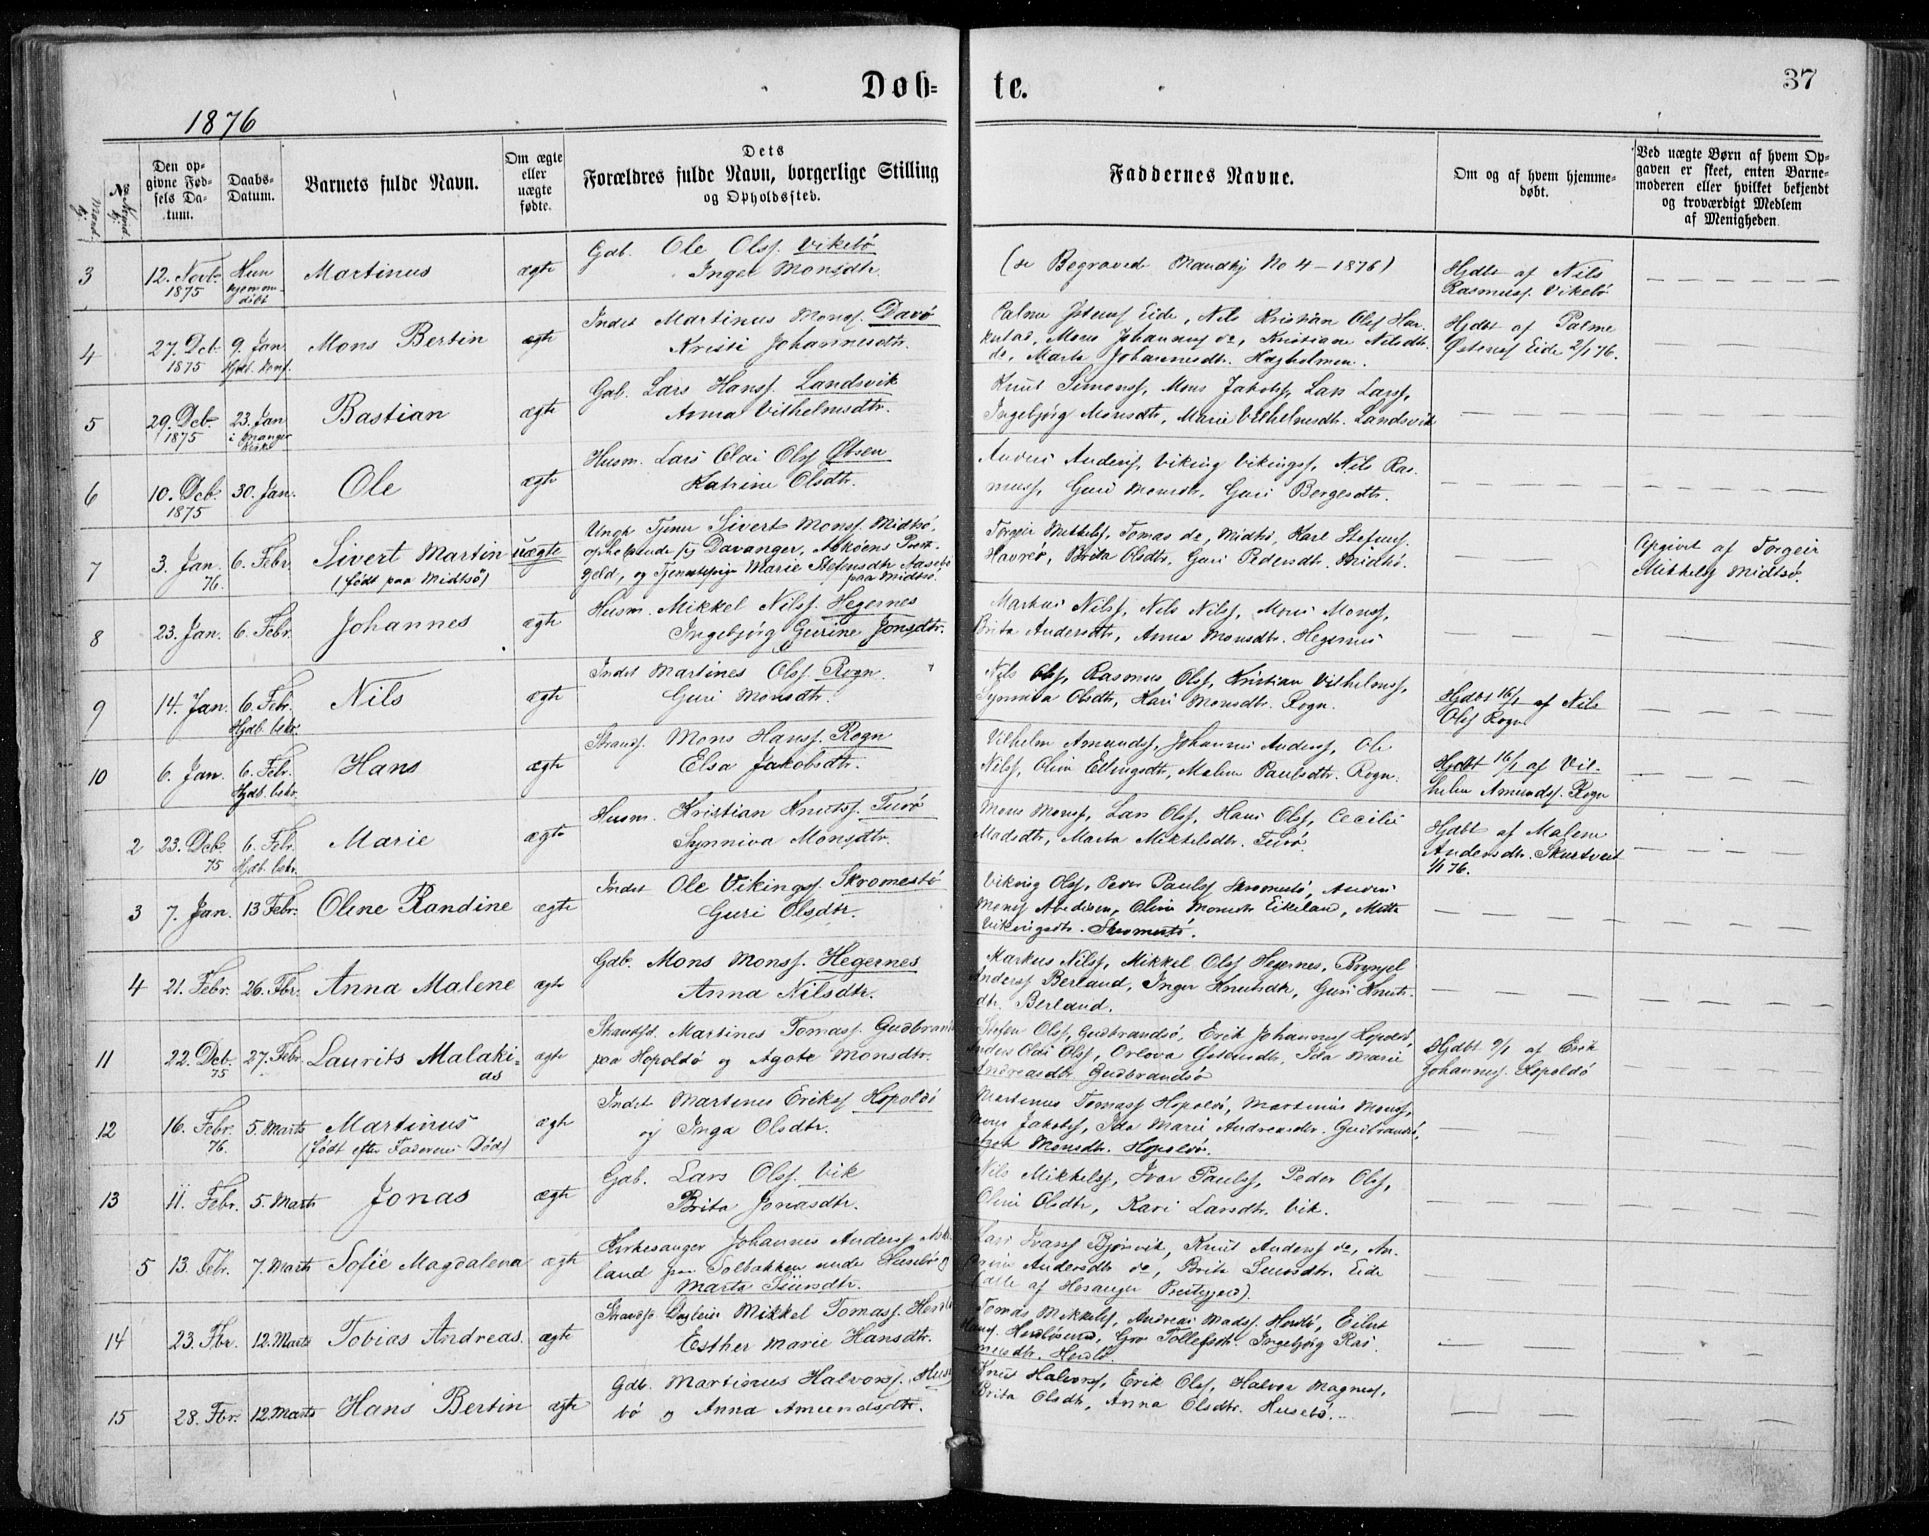 Døb-
te.
37
1876
№
Mandkj.
Kvindkj.
Den op-
givne Fød-
sels Da-
tum.
Daabs-
Datum.
Barnets fulde Navn.
Om ægte
eller
uægte
fødte.
Dets
Forældres fulde Navn, borgerlige Stilling
og Opholdssted.
Faddernes Navne.
Om og af hvem hjemme-
døbt.
Ved uægte Børn af hvem Op-
gaven er skeet, enten Barne-
moderen eller hvilket bekjendt
og troværdigt Medlem
af Menigheden.
3
12. Novbr
1875
Kun
hjemme-
døbt
Martinus
ægte
Gdb. Ole Olss. Vikebø
Inger Monsdtr.
(se Begravede Mandkj No 4 – 1876)
Hjdbt af Nils
Rasmuss. Vikebø
4
27. Dcb
1875
9. Jan.
Hjdb. Konf.
Mons Bertin
ægte
Indst Martinus Monss. Davø
Kristi Johannesdtr.
Palme Østenss Eide, Nils Kristian Olss Har-
kestad, Mons Johanness do, Kristiane Nilsdtr
do, Marta Johannesdtr. Hagholmen.
Hjdbt af Palme
Østenss Eide 2/1 76.
5
29. Dcb.
1875
23. Jan
i Manger
Kirke
Bastian
ægte
Gab. Lars Hanss. Landsvik
Anna Vilhelmsdtr.
Knut Simonss, Mons Jakobss, Lars Larss,
Ingebjørg Monsdtr, Marie Vilhelmsdtr. Landsvik
6
10. Dcb.
1875
30. Jan.
Ole
ægte
Husm. Lars Olai Olss Øksen
Katrine Olsdtr.
Anders Anderss, Viking Vikingss, Nils Ras-
muss, Guri Monsdtr, Guri Bergesdtr.
7
3. Jan.
76.
6. Febr
Sivert Martin
(født paa Midtsø)
uægte
Ungk. Tjener Sivert Monss. Midtsø,
opholdende sig Davanger, Askøens Præst.
Geld, og Tjenestepige Marie Stefensdtr Aasebø
paa Midtsø.
Torgeir Mikkelss, Tomas do, Midtsø, Karl Stefenss.
Havrø, Brita Olsdtr, Guri Pedersdtr. Midtsø.
Opgivet af Torgeir
Mikkelss Midtsø.
8
23. Jan.
6. Febr.
Johannes
ægte
Husm. Mikkel Nilss. Hegernes
Ingebjørg Gurine Jonsdtr.
Markus Nilss, Nils Nilss, Mons Monss,
Brita Andersdtr, Anna Monsdtr. Hegernes
9
14. Jan.
6. Febr.
Hjdb. bekr.
Nils
ægte
Indst Martines Olss. Rogn.
Guri Monsdtr.
Nils Olss, Rasmus Olss, Kristian Vilhelmss,
Synniva Olsdtr, Kari Monsdtr. Rogn.
Hjdbt 16/1 af Nils
Olss Rogn
10
6. Jan.
6. Febr.
Hjdb. bekr.
Hans
ægte
Strands. Mons Hanss. Rogn
Elsa Jakobsdtr.
Vilhelm Amundss, Johannes Anderss, Ole
Nilss, Oline Ellingsdtr, Malene Paulsdtr. Rogn.
Hjdbt 16/1 af Vil-
helm Amundss. Rogn
2
23. Dcb
75
6. Febr.
Hjdb. bekr.
Marie
ægte
Husm. Kristian Knutss. Turø
Synniva Monsdtr.
Mons Monss, Lars Olss, Hans Olss, Cecilie
Madsdtr, Marta Mikkelsdtr. Turø.
Hjdbt af Malene
Andersdtr. Skurtveit
1/1 76.
3
7. Jan.
13 Febr.
Oline Randine
ægte
Indst Ole Vikingss. Skromestø
Guri Olsdtr.
Viking Olss, Peder Paulss Skromestø, Anders
Monss Abedissen, Oline Monsdtr Eikeland, Mette
Vikingsdtr. Skromestø.
4
21. Febr.
26. Fbr.
Anna Malene
ægte
Gdb. Mons Monss. Hegernes
Anna Nilsdtr.
Markus Nilss, Mikkel Olss Hegernes, Brynjel
Anderss Berland, Inger Knutsdtr, Guri Knuts-
dtr. Berland.
11
22. Dcb.
75
27. Febr.
Laurits Malaki-
as
ægte
Strandsd Martines Tomass. Gudbrand
paa Hopoldø og Agate Monsdtr.
Stefen Olss, Gudbrandsø, Erik Johanness Hopoldø,
Anders Olai Olss, Ida Marie
Andreasdtr Gudbrandsø
Hjdbt 9/1 af Erik
Johanness. Hopoldø
12
16. Febr.
76.
5. Marts
Martinus
(født efter Faderens Død)
ægte
Indst Martines Erikss Hopoldø
og Inga Olsdtr.
Martinus Tomass Hopoldø, Martinus Monss,
Mons Jakobss, Ida Marie Andreasdtr. Gudbrandsø,
Monsdtr. Hopoldø.
13
11. Febr.
5. Marts
Jonas
ægte
Gab. Lars Olss. Vik
Brita Jonasdtr.
Nils Mikkelss, Ivar Paulss, Peder Olss,
Oline Olsdtr, Kari Larsdtr. Vik.
5
13. Febr.
7. Marts
Sofie Magdalena
ægte
Kirkesanger Johannes Anderss Aske-
land paa Solbakken under Husebø og
Marta Sjursdtr.
Lars Ivarss Bjørsvik, Knut Anderss do, An-
Andersdtr do, Brita Sjursdtr. Eide
(alle af Hosanger Præstegjeld).
14
23. Fbr.
12. Marts
Tobias Andreas.
ægte
Strands. Mikkel Tomass. Herdlø
Esther Marie Hansdtr.
Tomas Mikkelss, Andreas Madss. Herdlø, Eilert
Hanss. Herdløsund, Gro Tollefsdtr. Ingebjørg Ras-
musdtr. Herdlø.
15
28. Fbr.
12. Marts
Hans Bertin
ægte
Gdb. Martinus Halvorss. Huse-
bø og Anna Amundsdtr.
Knut Halvorss, Erik Olss, Halvor Magness,
Brita Olsdtr, Anna Olsdtr. Husebø.